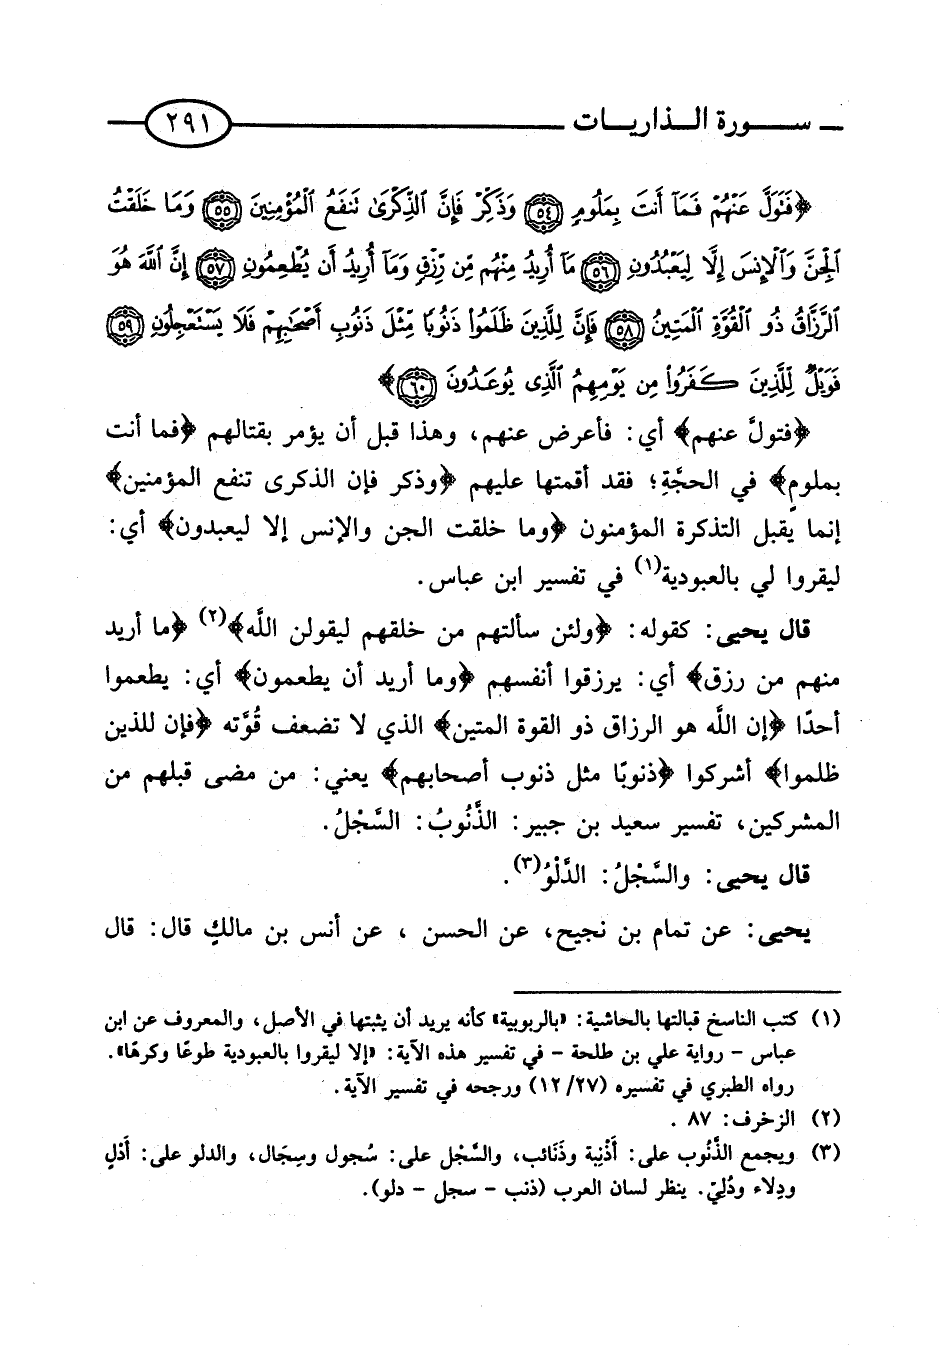 سورة الذاريات ٢٩١
﴿فَتَوَلَّ عَنْهُمْ فَمَآ أَنتَ بِمَلُومٍ ٥٤ وَذَكِّرْ فَإِنَّ ٱلذِّكْرَىٰ تَنفَعُ ٱلْمُؤْمِنِينَ ٥٥ وَمَا خَلَقْتُ
ٱلْجِنَّ وَٱلْإِنسَ إِلَّا لِيَعْبُدُونِ ٥٦ مَآ أُرِيدُ مِنْهُم مِّن رِّزْقٍ وَمَآ أُرِيدُ أَن يُطْعِمُونِ ٥٧ إِنَّ ٱللَّهَ هُوَ
ٱلرَّزَّاقُ ذُو ٱلْقُوَّةِ ٱلْمَتِينُ ٥٨ فَإِنَّ لِلَّذِينَ ظَلَمُوا۟ ذَنُوبًا مِّثْلَ ذَنُوبِ أَصْحَٰبِهِمْ فَلَا يَسْتَعْجِلُونِ ٥٩
فَوَيْلٌ لِّلَّذِينَ كَفَرُوا۟ مِن يَوْمِهِمُ ٱلَّذِى يُوعَدُونَ ٦٠﴾
﴿فتولَّ عنهم﴾ أي: فأعرض عنهم، وهذا قبل أن يؤمر بقتالهم ﴿فما أنت
بملومٍ﴾ في الحجَّةِ؛ فقد أقمتها عليهم ﴿وذكر فإن الذكرى تنفع المؤمنين﴾
إنما يقبل التذكرة المؤمنون ﴿وما خلقت الجن والإنس إلا ليعبدون﴾ أي:
ليقروا لي بالعبودية(١) في تفسير ابن عباس.
قال يحيى: كقوله: ﴿ولئن سألتهم من خلقهم ليقولن اللَّه﴾(٢) ﴿ما أريد
منهم من رزق﴾ أي: يرزقوا أنفسهم ﴿وما أريد أن يطعمون﴾ أي: يطعموا
أحدًا ﴿إن اللَّه هو الرزاق ذو القوة المتين﴾ الذي لا تضعف قُوَّته ﴿فإن للذين
ظلموا﴾ أشركوا ﴿ذنوبًا مثل ذنوب أصحابهم﴾ يعني: من مضى قبلهم من
المشركين، تفسير سعيد بن جبير: الذَّنُوبُ: السَّجْلُ.
قال يحيى: والسَّجْلُ: الدَّلْوُ(٣).
يحيى: عن تمام بن نجيح، عن الحسن ، عن أنس بن مالكٍ قال: قال
(١) كتب الناسخ قبالتها بالحاشية: «بالربوبية» كأنه يريد أن يثبتها في الأصل، والمعروف عن ابن
عباس - رواية علي بن طلحة - في تفسير هذه الآية: «إلا ليقروا بالعبودية طوعًا وكرهًا».
رواه الطبري في تفسيره (١٢/٢٧) ورجحه في تفسير الآية.
(٢) الزخرف: ٨٧ .
(٣) ويجمع الذَّنُوب على: أَذْنِبة وذَنَائب، والسَّجْل على: سُجول وسِجَال، والدلو على: أَدْلٍ
ودِلاء ودُلِيّ. ينظر لسان العرب (ذنب - سجل - دلو).